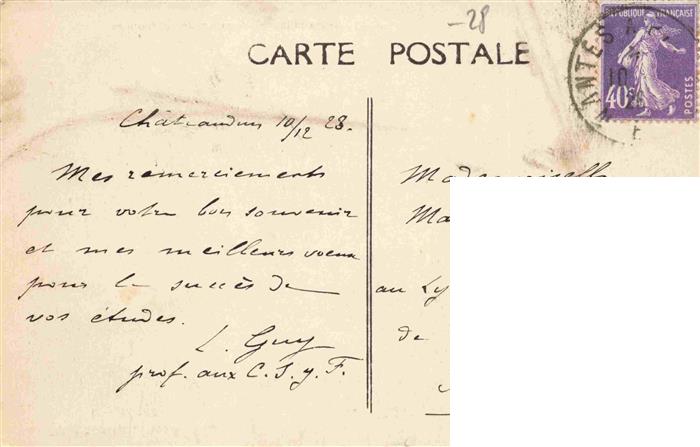 -28
CARTE POSTALE
RÉPUBLIQUE FRANÇAISE
40c
POSTES
NANTES
10
Châteaudun 10/12 28.
Mes remerciements
pour votre bon souvenir
et mes meilleurs voeux
pour le succès de
vos études.
L. Guy
prof. aux C. S. y. F.
Mademoiselle
Ma
au Ly
de